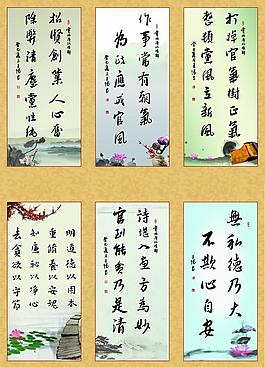 招賢創業人心齊
除弊清廉黨性純
作事當有朝氣
為政應戒官風
打掉官氣樹正氣
整頓黨風立新風
明道德以固本
重修養以安魂
知廉恥以淨心
去貪欲以守節
詩堪入畫方為妙
官到能貧乃是清
無私德乃大
不欺心自安